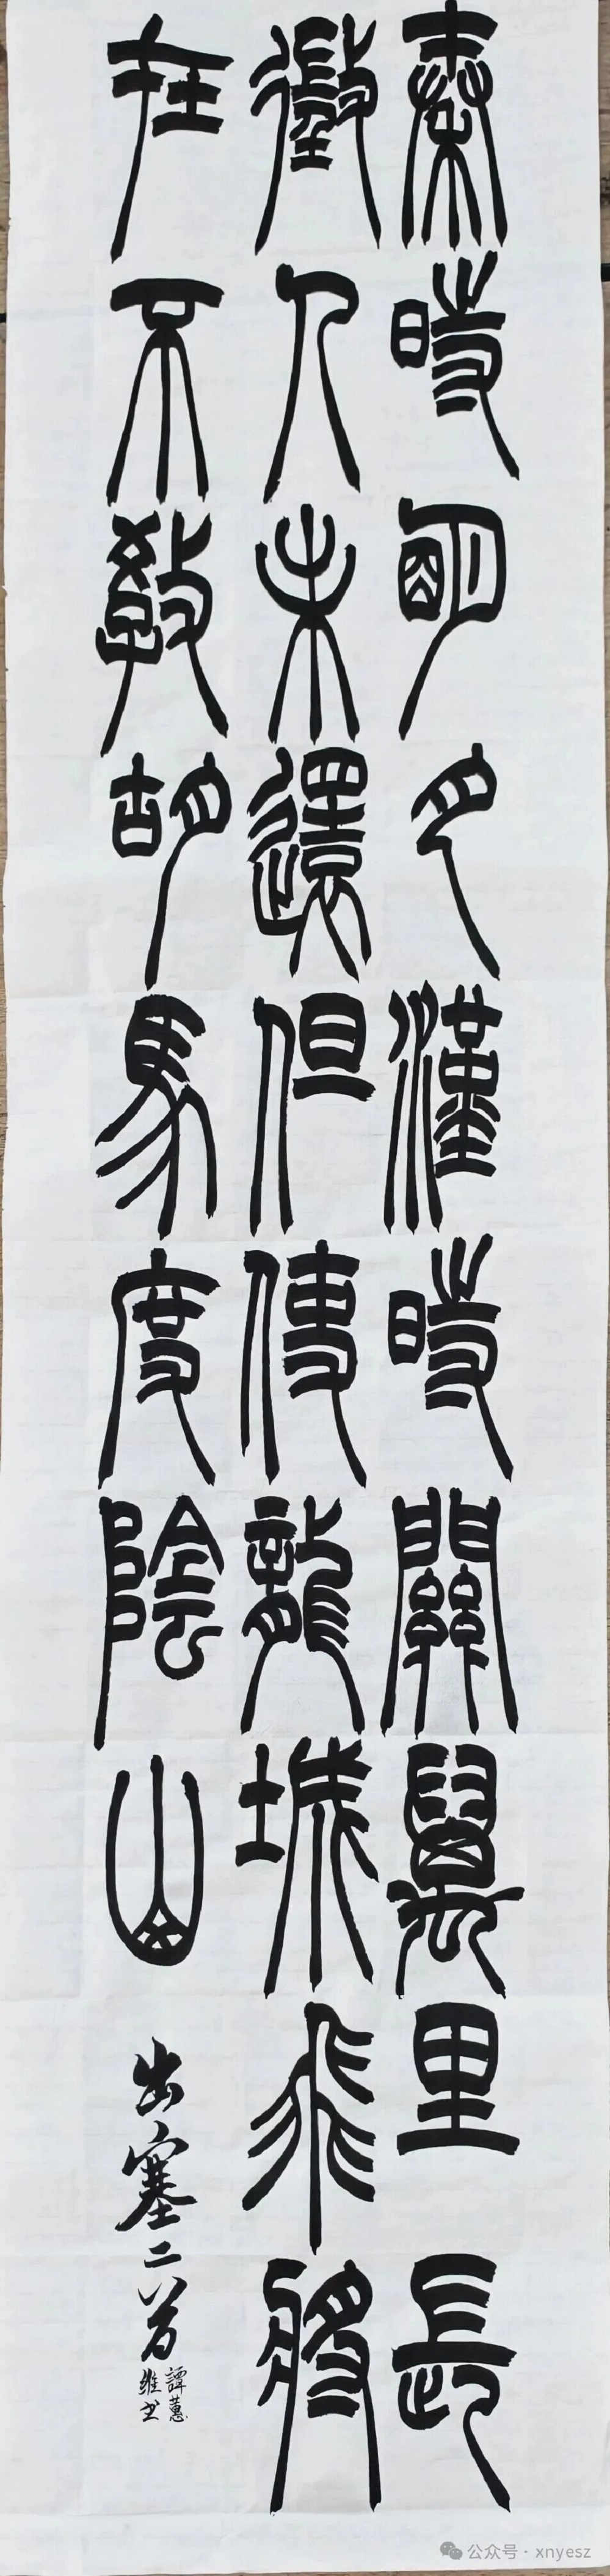 秦時明月漢時關萬里長
徵人未還但使龍城飛將
在不教胡馬度陰山
出塞二首
譚蕙
維书
公众号 · xnyesz